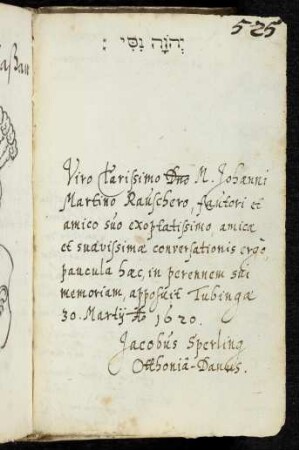 525
יְהוָֹה נִסִּי :
Viro Clarissimo Dno M. Johanni
Martino Rauschero, fautori et
amico suo exoptatissimo, amicæ
et suavissimæ conversationis ergo
paucula hæc, in perennem sui
memoriam, apposuit Tubingæ
30. Martij A͞o 1620.
Jacobus Sperling
Otthoniâ-Danus.